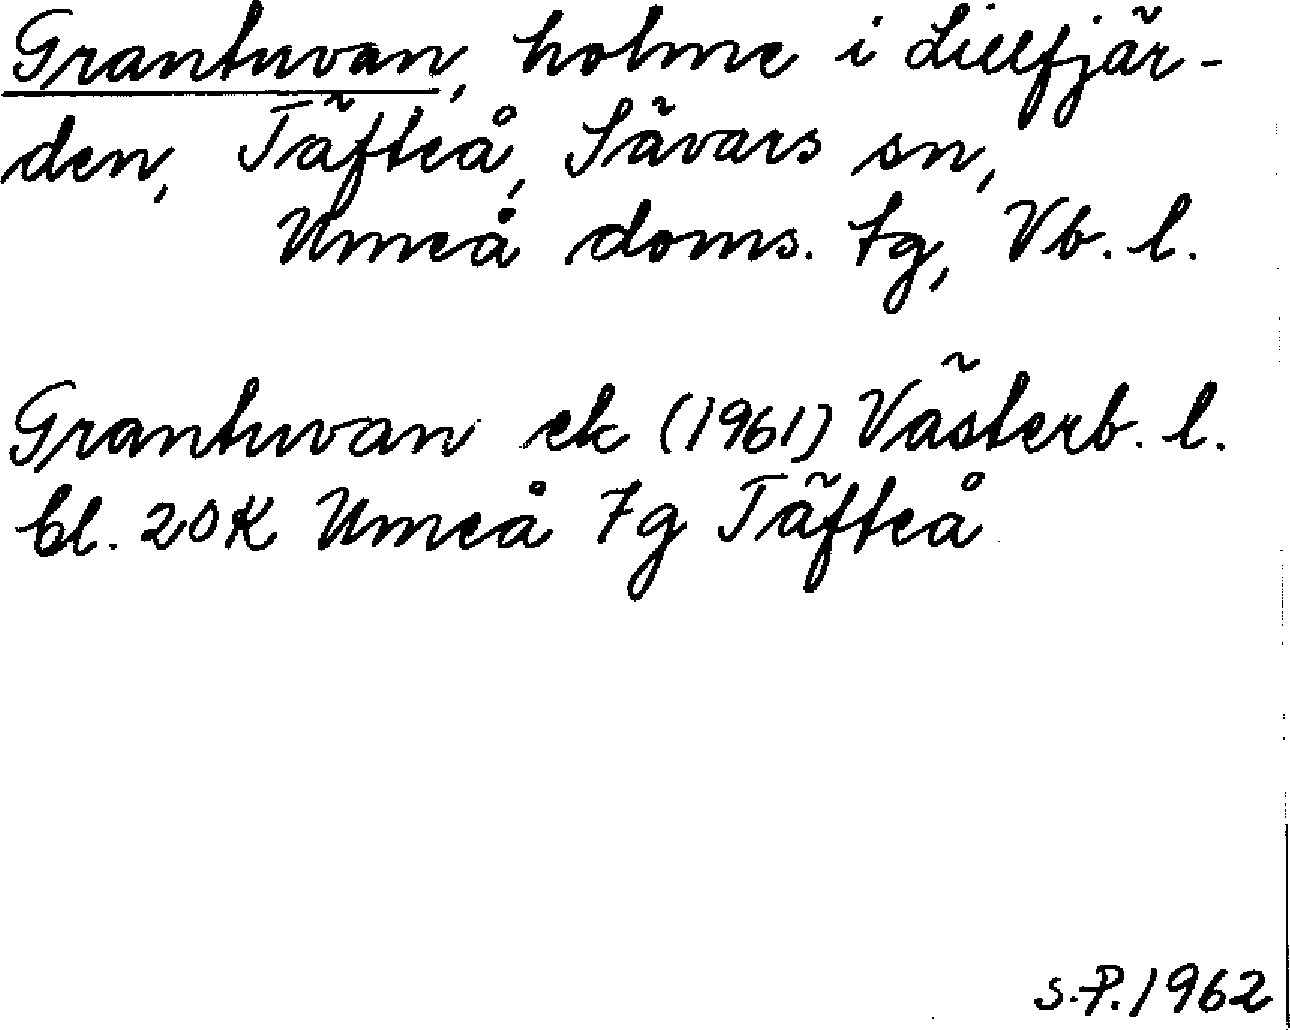 Grantuvan, holme i Lillfjär-
den, Täfteå, Sävars sn,
Umeå doms. tg, Vb. l.
Grantuvan ek (1961) Västerb. l.
bl. 20K Umeå 7g Täfteå
S.P. 1962